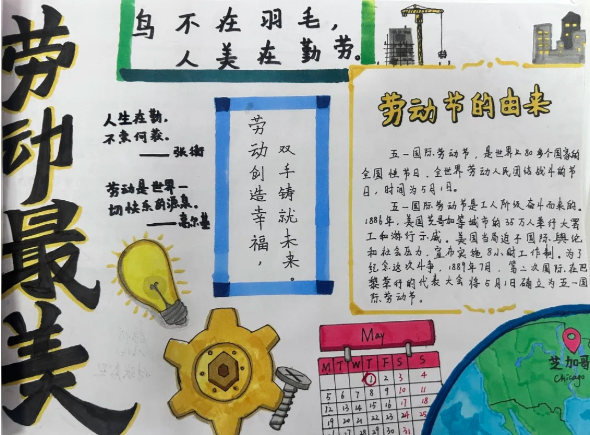 劳动最美
鸟不在羽毛，
人美在勤劳。
人生在勤，
不索何获。
——张衡
劳动是世界一
切快乐的源泉。
——高尔基
双手铸就未来。
劳动创造幸福，
劳动节的由来
五一国际劳动节，是世界上80多个国家的
全国性节日，全世界劳动人民团结战斗的节
日，时间为5月1日。
五一国际劳动节是工人阶级奋斗而来的。
1886年，美国芝哥加等城市的35万人举行大罢
工和游行示威。美国当局迫于国际舆论
和社会压力，宣布实施8小时工作制。为了
纪念这次斗争，1889年7月，第二次国际在巴
黎举行的代表大会将5月1日确立为五一国
际劳动节。
May
M T W T F S S
1 2 3 4
5 6 7 8 9 10 11
芝加哥
Chicago